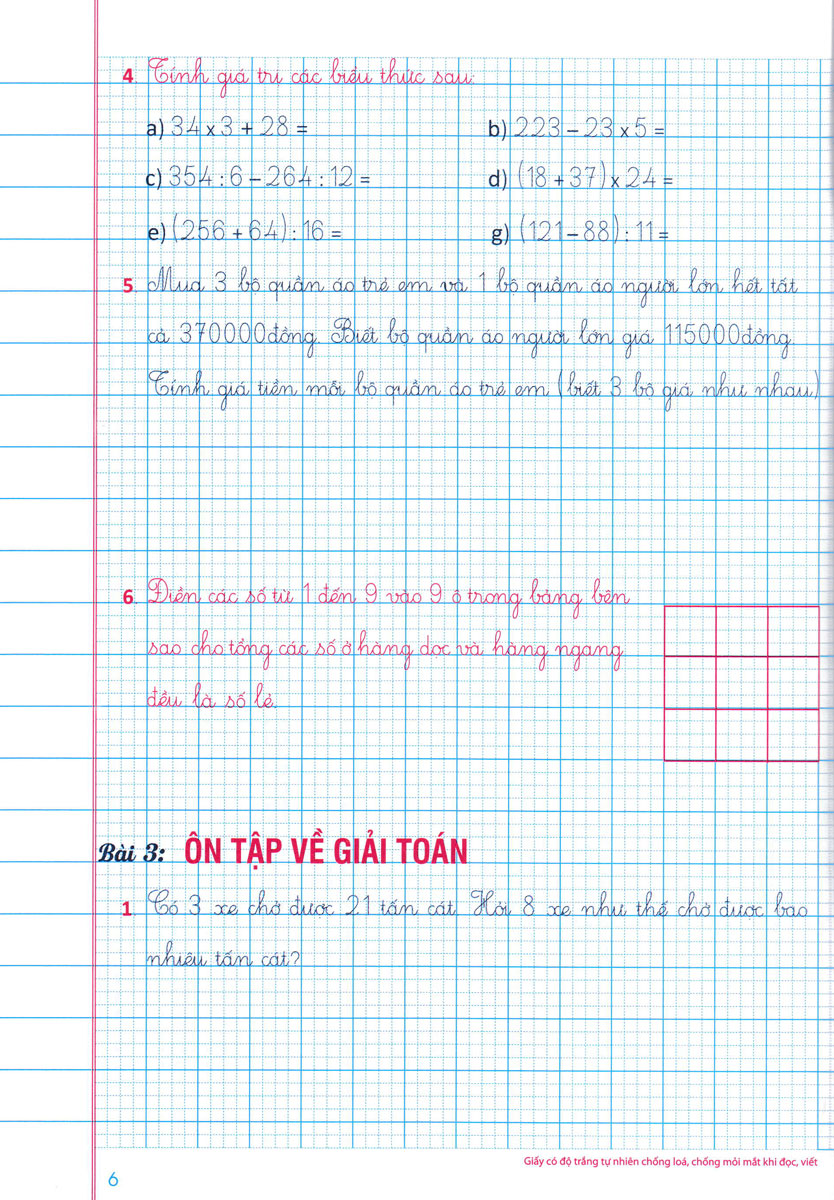 4. Tính giá trị các biểu thức sau:
a) 34 x 3 + 28 = b) 223 - 23 x 5 =
c) 354 : 6 - 264 : 12 = d) (18 + 37) x 24 =
e) (256 + 64) : 16 = g) (121 - 88) : 11 =
5. Mua 3 bộ quần áo trẻ em và 1 bộ quần áo người lớn hết tất
cả 370000đồng. Biết bộ quần áo người lớn giá 115000đồng.
Tính giá tiền mỗi bộ quần áo trẻ em (biết 3 bộ giá như nhau)
6. Điền các số từ 1 đến 9 vào 9 ô trong bảng bên
sao cho tổng các số ở hàng dọc và hàng ngang
đều là số lẻ.
Bài 3: ÔN TẬP VỀ GIẢI TOÁN
1 Có 3 xe chở được 21 tấn cát. Hỏi 8 xe như thế chở được bao
nhiêu tấn cát?
Giấy có độ trắng tự nhiên chống loá, chống mỏi mắt khi đọc, viết
6